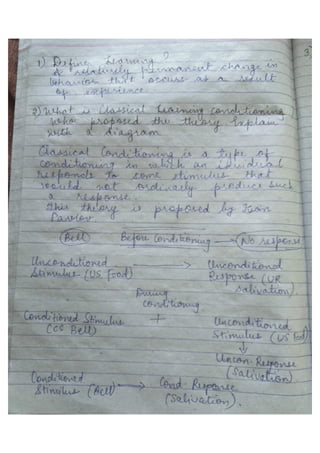 3
1) Define Learning?
A relatively permanent change in
behavior that occurs as a result
of experience
2) What is Classical Learning conditioning
who proposed the theory. Explain
with a diagram
Classical Conditioning is a type of
conditioning in which an individual
responds to some stimulus that
would not ordinarily produce such
a response.
This theory is proposed by Ivan
Pavlov.
(Bell) Before Conditioning → (No response
Unconditioned > Unconditional
Stimulus (US Food) Response (UR
Salivation).
During
Conditioning
Conditioned Stimulus + Unconditioned
(CS Bell) Stimulus (US food)
↓
Uncon-Response
(Salivation)
Conditioned → Cond-Response
Stimulus (Bell) (Salivation).